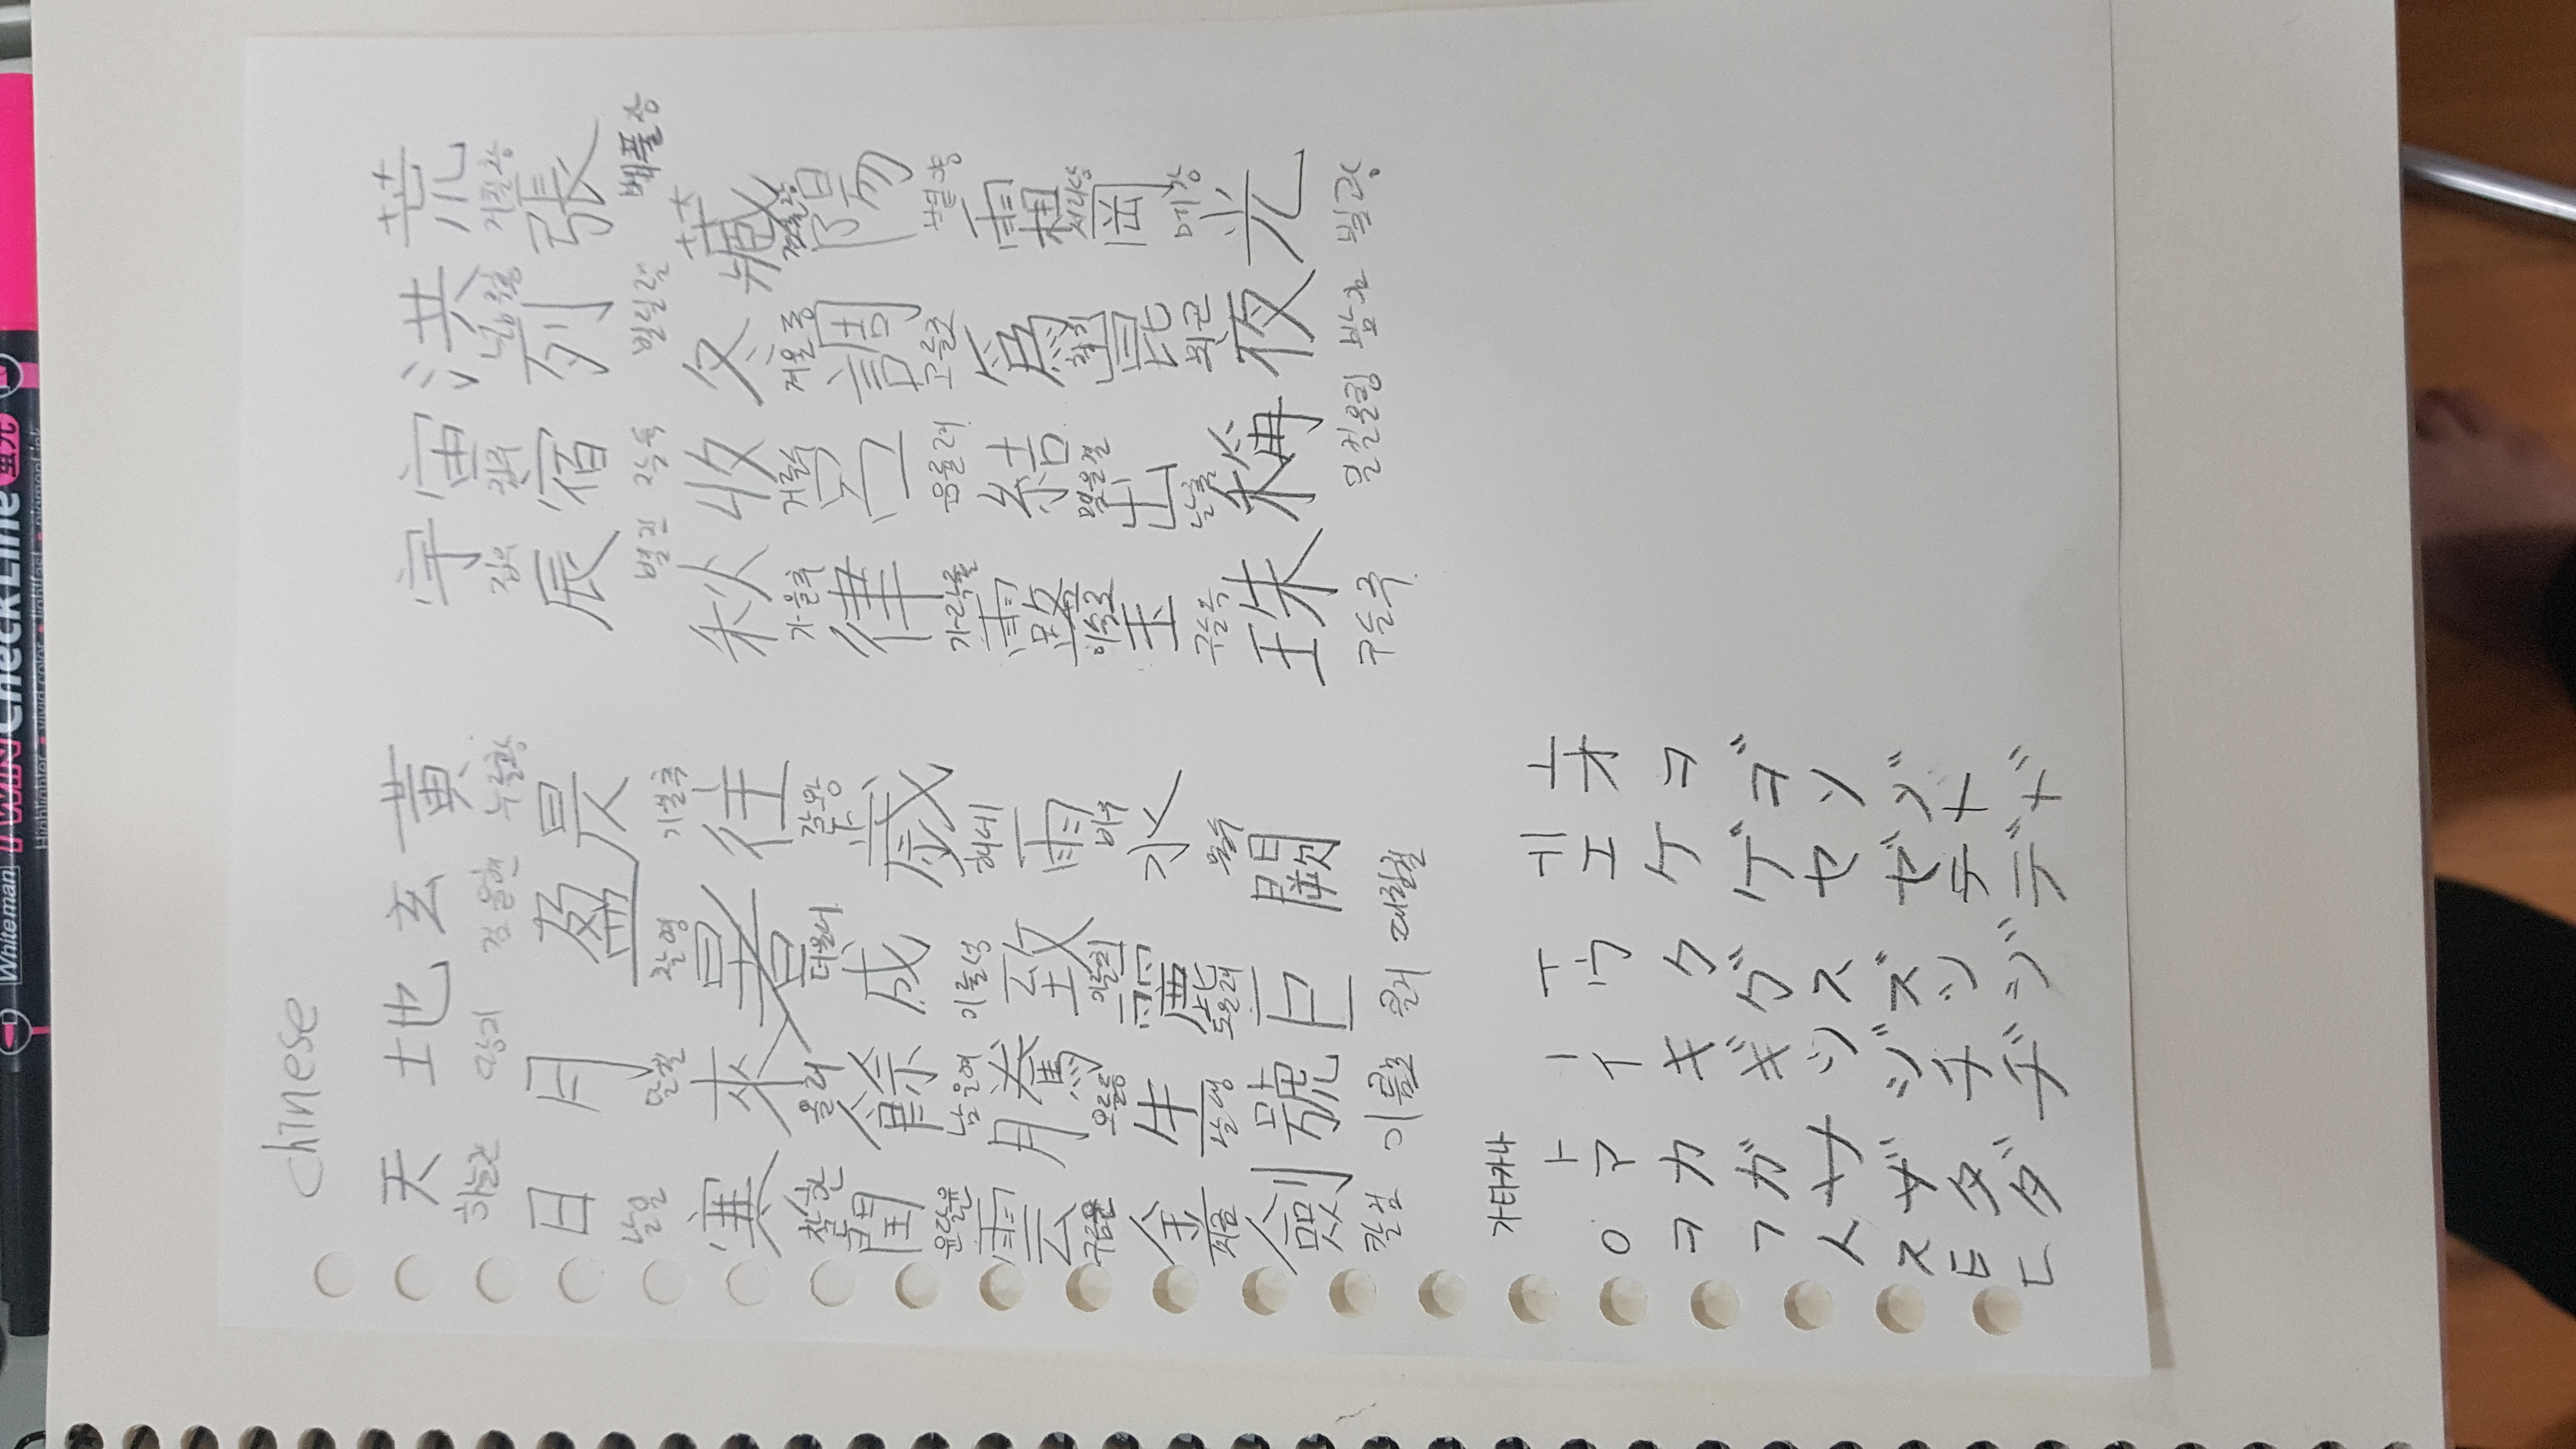 Chinese
天 地 玄 黃 宇 宙 洪 荒
하늘천 땅지 검을현 누를황 집우 집주 넓을홍 거칠황
日 月 盈 昃 辰 宿 列 張
날일 달월 찰영 기울측 별진 잘숙 벌릴렬 베풀장
寒 來 暑 往 秋 收 冬 藏
찰한 올래 더울서 갈왕 가을추 거둘수 겨울동 감출장
閏 餘 成 歲 律 呂 調 陽
윤달윤 남을여 이룰성 해세 가락률 음률려 고를조 볕양
雲 騰 致 雨 露 結 爲 霜
구름운 오를등 이를치 비우 이슬로 맺을결 할위 서리상
金 生 麗 水 玉 出 崑 岡
쇠금 날생 고울려 물수 구슬옥 날출 뫼곤 메강
劍 號 巨 闕 珠 稱 夜 光
칼검 이름호 클거 대궐궐 구슬주 일컬을칭 밤야 빛광
가타카나
ㅏ ㅣ ㅜ ㅔ ㅗ
ㅇ ア イ ウ エ オ
ㅋ カ キ ク ケ コ
ㄱ ガ ギ グ ゲ ゴ
ㅅ サ シ ス セ ソ
ㅈ ザ ジ ズ ゼ ゾ
ㅌ タ チ ツ テ ト
ㄷ ダ ヂ ヅ デ ド
Whiteman TWIN CheckLine 형광